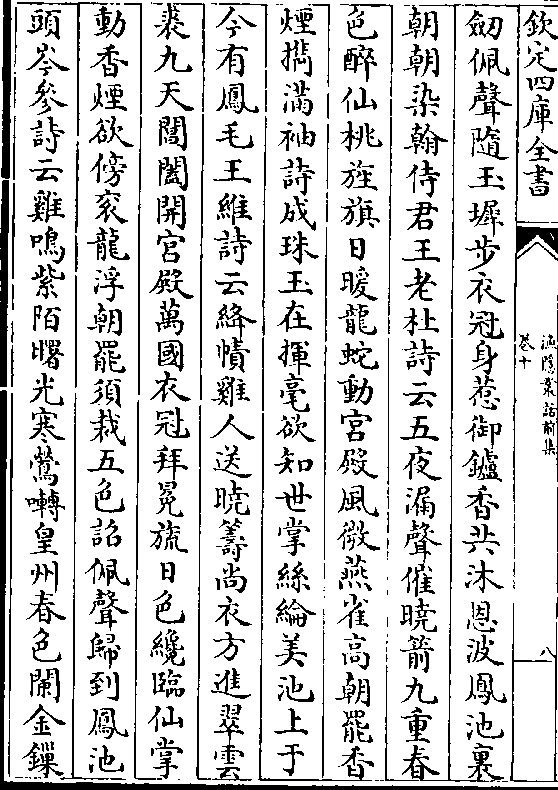 欽定四庫全書
漁隱叢話前集
卷十
八
劒佩聲隨玉墀步衣冠身惹御鑪香共沐恩波鳳池裏
朝朝染翰侍君王老杜詩云五夜漏聲催曉箭九重春
色醉仙桃旌旗日暖龍蛇動宮殿風微燕雀高朝罷香
煙擕滿袖詩成珠玉在揮毫欲知世掌絲綸美池上于
今有鳳毛王維詩云絳幘雞人送曉籌尚衣方進翠雲
裘九天閶闔開宮殿萬國衣冠拜冕旒日色纔臨仙掌
動香煙欲傍衮龍浮朝罷須裁五色詔佩聲歸到鳳池
頭岑參詩云雞鳴紫陌曙光寒鶯囀皇州春色闌金鏁